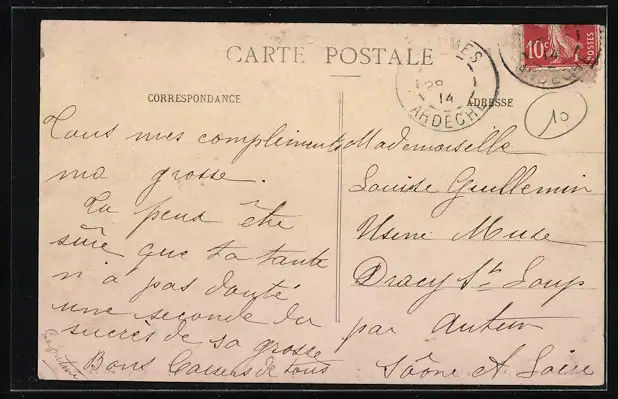 CARTE POSTALE
CORRESPONDANCE
Tous mes compliments
ma grosse.
Tu peux être
sûre que ta tante
n'a pas douté
une seconde du
succès de sa grosse
Bons baisers de tous
ADRESSE
Mademoiselle
Louise Guillemin
Usine Muse
Dracy St Loup
par Autun
Saône et Loire
10
MES
14
ARDÈCHE
10c
POSTES
14
ARDÈCHE